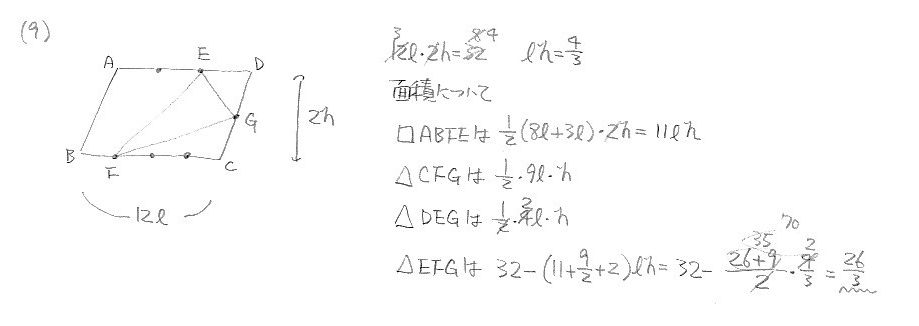 (9)
A E D
G
B F C
2h
12l
12l・2h=32 3 8 4 lh=4/3
面積について
□ABFEは 1/2(8l+3l)・2h=11lh
△CFGは 1/2・9l・h
△DEGは 1/2・4l・h 2
△EFGは 32-(11+9/2+2)lh=32-(26+9)/2・4/3=26/3
35 70 2